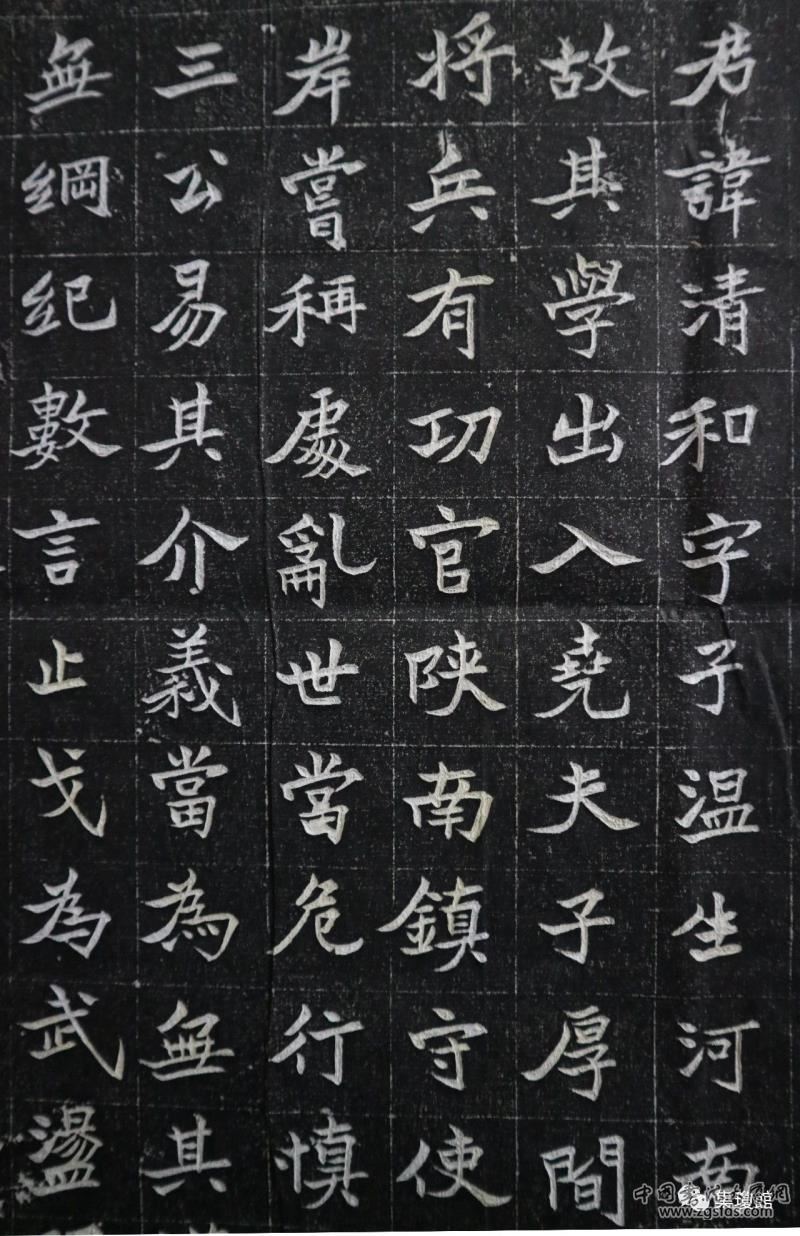 君諱清和字子温生河南
故其學出入堯夫子厚間
将兵有功官陝南鎮守使
岸嘗稱處亂世當危行慎
三公易其介義當為無其
無綱紀數言止戈為武盪
www.zgsfds.com
集瓊館